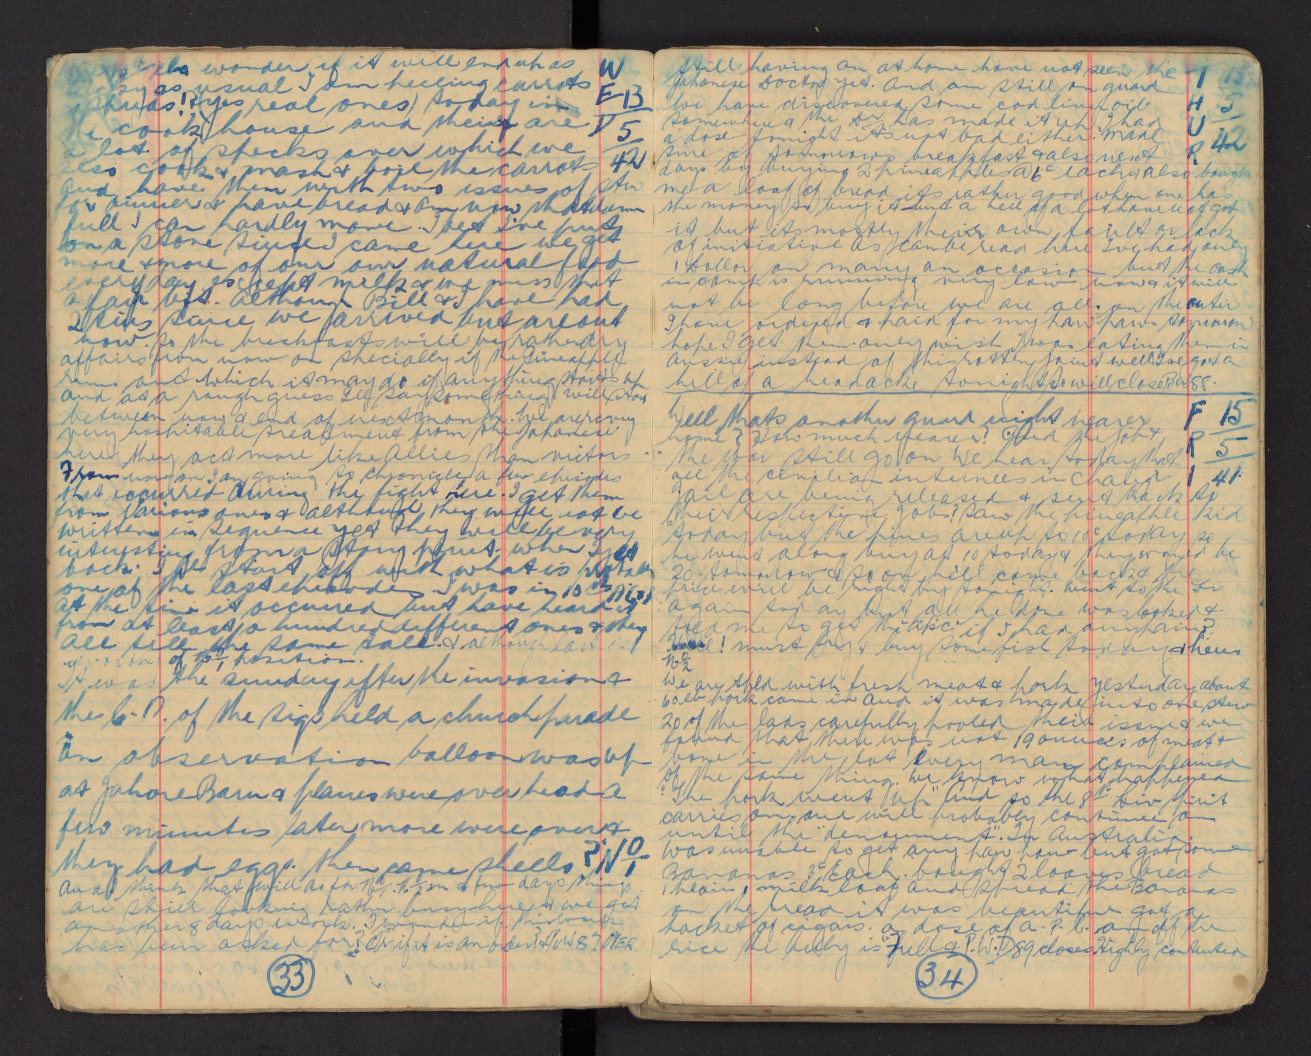 wonder if it will end up as
as usual I am heeling carrots
spuds! (yes real ones) today in
the cook house and there are
a lot of specks over which we
also cook & mash & boil the carrots
and have them with two issues of stew
for dinner & have bread & am now that
full I can hardly move. I bet I've put
on a stone since I came here we get
more & more of our own natural food
every day except milk & we miss that
a fair bit. although Bill & I have had
2 tins since we arrived but are out
now so the breakfasts will be rather dry
affairs from now on specially if the pineapples
and which it may do if anything starts up
and at a rough guess I'd say something will start
between now & end of next month. We are
very hospitable treatment from the Japanese
here they act more like Allies than victors
From now on I am going to chronicle a few episodes
that occurred during the fight here. I get them
from various ones & although they will not be
written in sequence yet they will be very
interesting from a story point when I get
back. I'll start off with what is probably
one of the last episodes. I was in 10th
at the time it occurred but have heard it
from at least a hundred different ones & they
all tell the same tale. & although
of position.
It was the sunday after the invasion &
the C.O. of the Sigs held a church parade
an observation balloon was up
at Johore Baru & planes were over head a
few minutes later more were over &
they had eggs. then came shells
and I think that will do for No. 1. in a few days things
are still looking rather busy here & we get
another 8 days work. I wonder if this
has been asked for? Or if it is an order? P.O.W 87. OVER
W
E 13
D 5
42
? No 1
33
Still having an at home have not seen the
Japanese Doctor yet. And am still on guard
We have discovered some cod liver oil
somewhere & the Dr has made it up. I had
a dose tonight its not bad either. made
sure of tomorrows breakfast & also next
days by buying 2 pineapples a 6c each & also bought
me a loaf of bread its rather good when one has
the money to buy it but a hell of a lot have not got
it but its mostly their own fault or lack
of initiative as can be read here I've had only
1 dollar on many an occasion but the cash
in camp is running very low now & it will
not be long before we are all on the outer
I have ordered & paid for my haw paws tomorrow
hope I get them only wish I was eating them in
aussie instead of this rotten joint well I've got a
hell of a headache tonight so will close POW 88.
T
H
U
R
5
42
Well thats another guard night nearer
home? How much nearer! God the job &
the war still go on We hear today that
all the civilian internees in Changi
gaol are being released & sent back to
their respective jobs? Saw the pineapple kid
today but the pines are up to 10c today so
he went along any at 10 today & they would be
20 tomorrow & so on he'll come back & the
price will be right by tonight. went to the Dr
again today but all he done was looked &
told me to get the apc if I had any pain?
! must try & buy some fish today & heres
No 2
We are filled with fresh meat & pork yesterday about
60 lb pork came in and it was made into one stew
20 of the lads carefully pooled their issue & we
found that there was not 19 ounces of meat &
bone in the lot Every man complained
of the same thing. We know what happened
The pork went "up" and so the 8th Div Spirit
carries on and will probably continue on
until the "denoument". In Australia
Was unable to get any haw paw but got some
Bananas 3c Each. bought 2 loaves bread
1 plain, 1 milk loaf and spread the Bananas
on the bread it was beautiful got a
packet of cigars. a dose of a.P.C. and of the
rice the belly is full & P.W.D 89 closes Highly contented
F 15
R 5
I 41
34